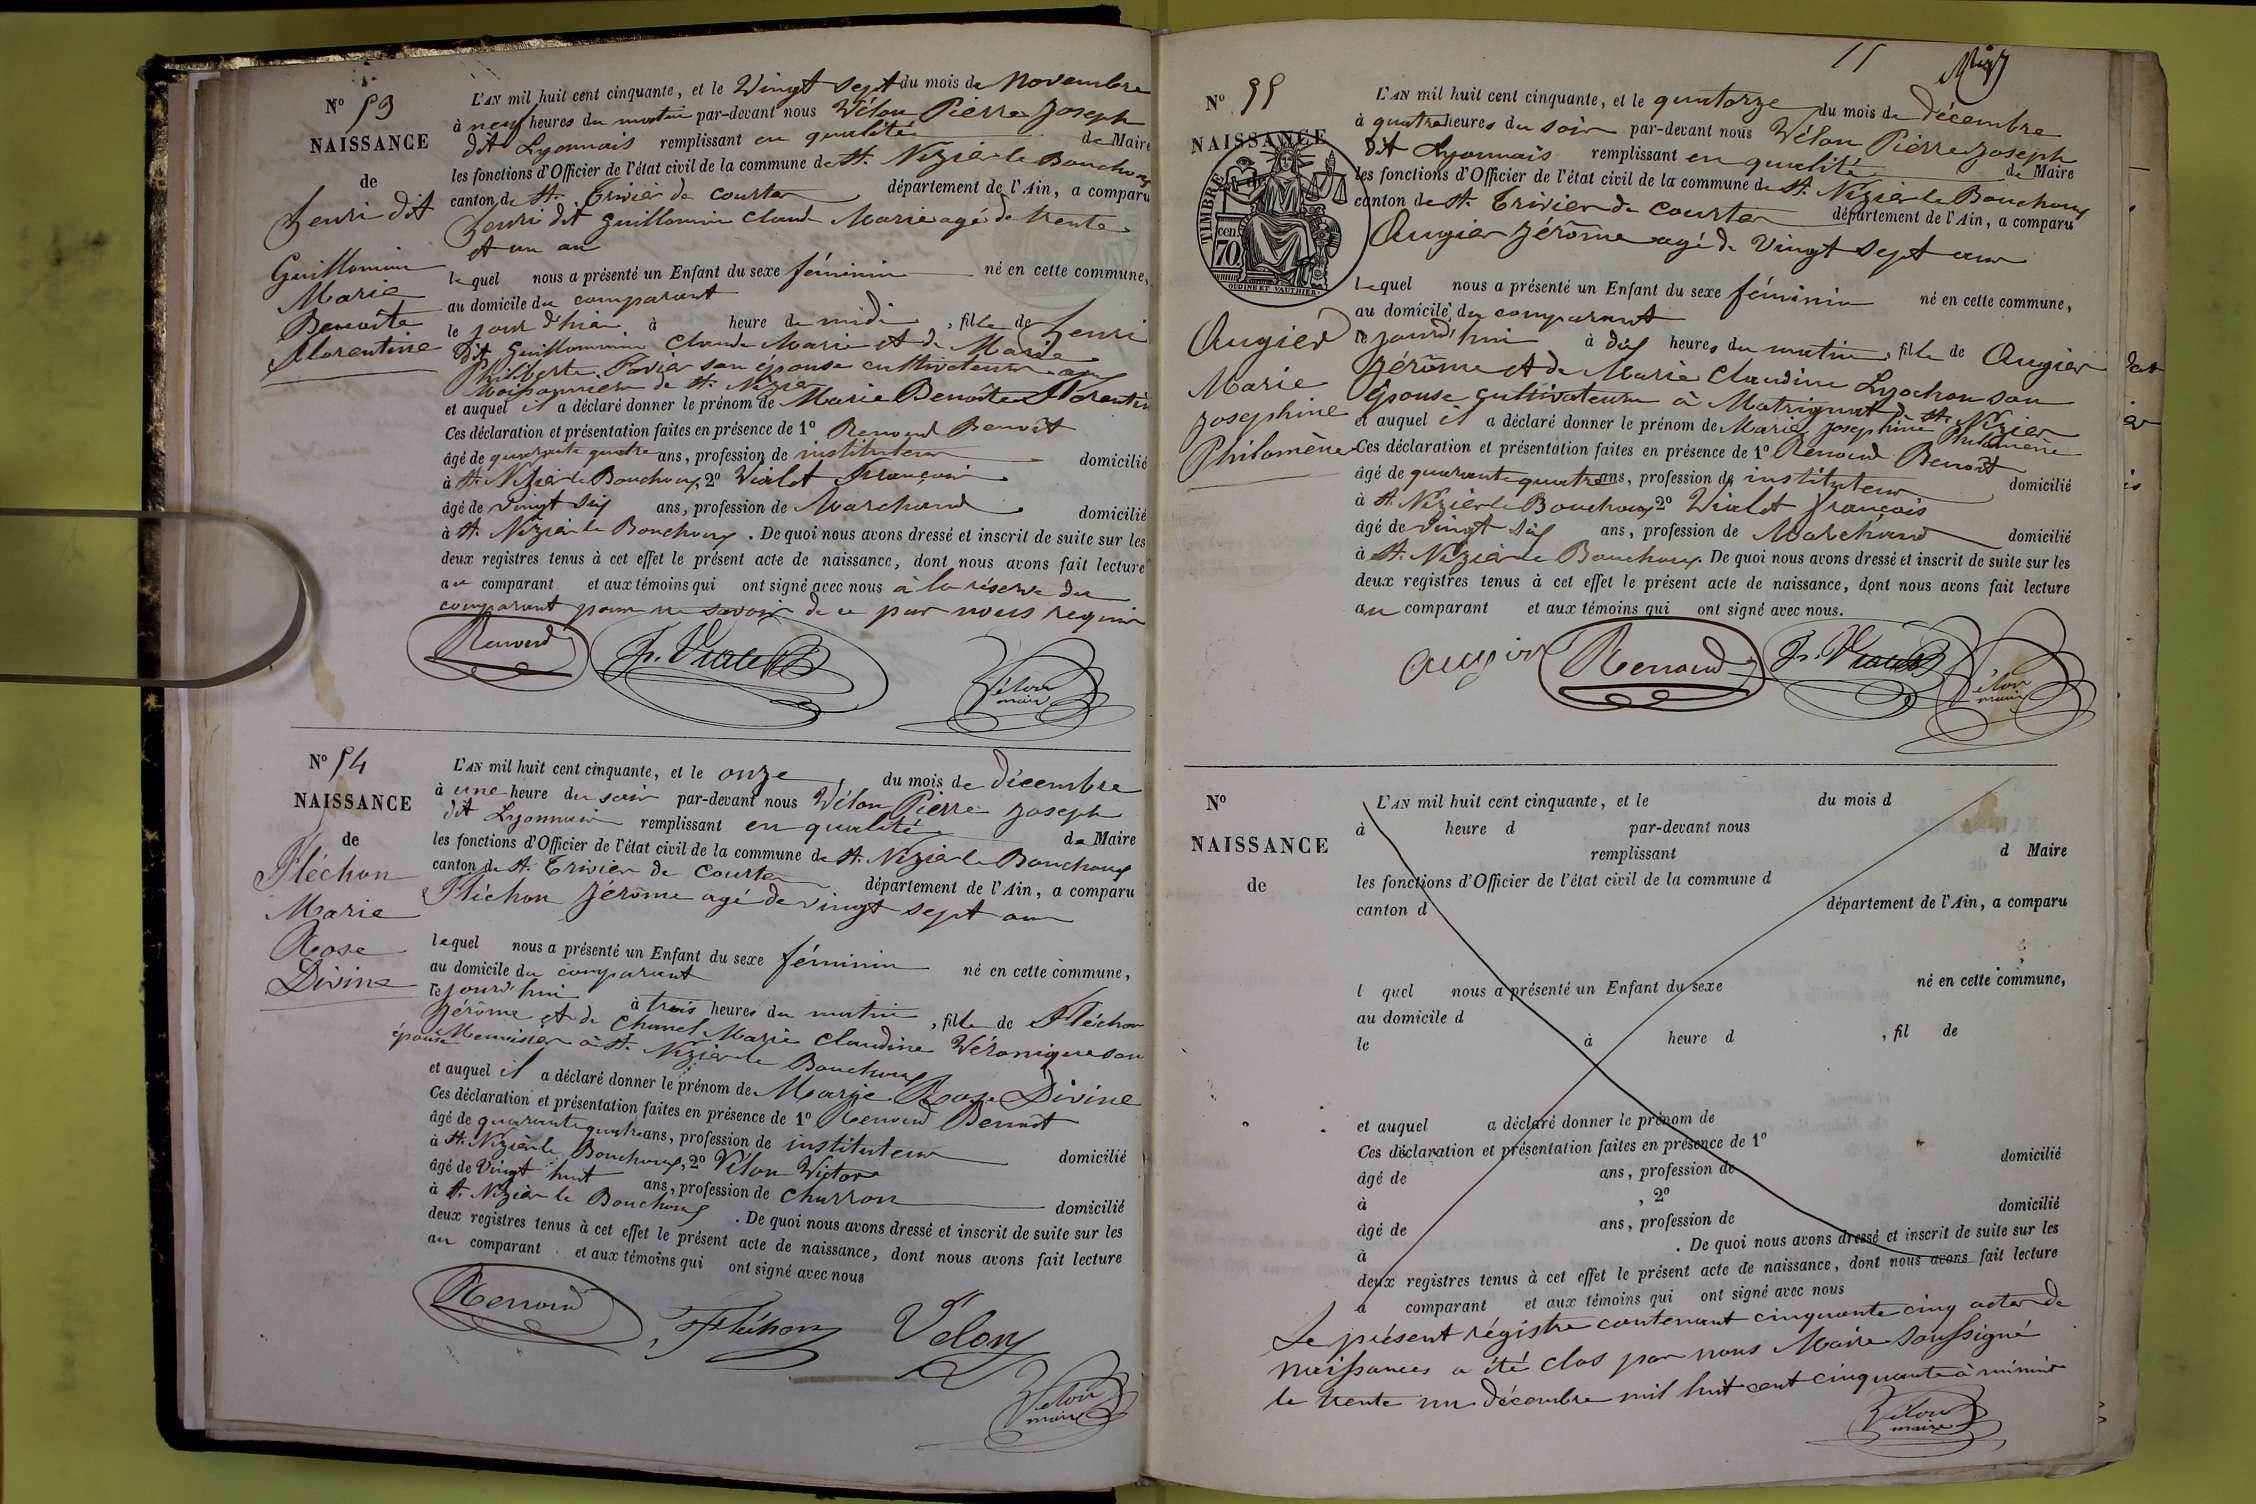 N° 53
NAISSANCE
de
Henri dit
Guillomin
Marie
Benoîte
Florentine
L'AN mil huit cent cinquante, et le Vingt sept du mois de Novembre
à neuf heures du matin par-devant nous Vélon Pierre Joseph
dit Lyonnais remplissant en qualité de Maire
les fonctions d'Officier de l'état civil de la commune de St. Nizier le Bouchoux
canton de St. Trivier de Courtes département de l'Ain, a comparu
henri dit guillomin Claude Marie agé de trente
et un ans
lequel nous a présenté un Enfant du sexe féminin né en cette commune,
au domicile du comparant
le jour d'hier à heure de midi, fille de henri
dit guillomin Claude Marie et de Marie
Philiberte Favier son épouse cultivateurs
de St. Nizier
et auquel il a déclaré donner le prénom de Marie Benoîte Florentine
Ces déclaration et présentation faites en présence de 1° Renoud Benoît
âgé de quarante quatre ans, profession de instituteur domicilié
à St. Nizier le Bouchoux, 2° Vialet François
âgé de vingt six ans, profession de Marchand domicilié
à St. Nizier le Bouchoux. De quoi nous avons dressé et inscrit de suite sur les
deux registres tenus à cet effet le présent acte de naissance, dont nous avons fait lecture
au comparant et aux témoins qui ont signé avec nous à la réserve du
comparant pour ne savoir de ce par nous requis
Renoud Fr. Vialet Vélon maire
N° 54
NAISSANCE
de
Fléchon
Marie
Rose
Divine
L'AN mil huit cent cinquante, et le onze du mois de décembre
à une heure du soir par-devant nous Vélon Pierre Joseph
dit Lyonnais remplissant en qualité de Maire
les fonctions d'Officier de l'état civil de la commune de St. Nizier le Bouchoux
canton de St. Trivier de Courtes département de l'Ain, a comparu
Fléchon Jérôme agé de vingt sept ans
lequel nous a présenté un Enfant du sexe féminin né en cette commune,
au domicile du comparant
le jourd'hui à trois heures du matin, fille de Fléchon
Jérôme et de Chanel Marie Claudine Véronique son
épouse Meunier à St. Nizier le Bouchoux
et auquel il a déclaré donner le prénom de Marie Rose Divine
Ces déclaration et présentation faites en présence de 1° Renoud Benoît
âgé de quarante quatre ans, profession de instituteur domicilié
à St. Nizier le Bouchoux, 2° Vélon Victor
âgé de Vingt huit ans, profession de charron domicilié
à St. Nizier le Bouchoux. De quoi nous avons dressé et inscrit de suite sur les
deux registres tenus à cet effet le présent acte de naissance, dont nous avons fait lecture
au comparant et aux témoins qui ont signé avec nous
Renoud Fléchon Vélon
Vélon maire
N° 55
NAISSANCE
de
TIMBRE
cen
70
OUDINE ET VAUTHIER
Augier
Marie
Josephine
Philomène
L'AN mil huit cent cinquante, et le quatorze du mois de décembre
à quatre heures du soir par-devant nous Vélon Pierre Joseph
dit Lyonnais remplissant en qualité de Maire
les fonctions d'Officier de l'état civil de la commune de St. Nizier le Bouchoux
canton de St. Trivier de Courtes département de l'Ain, a comparu
Augier Jérôme agé de vingt sept ans
lequel nous a présenté un Enfant du sexe féminin né en cette commune,
au domicile du comparant
le jourd'hui à dix heures du matin, fille de Augier
Jérôme et de Marie Claudine son
épouse cultivateurs à St. Nizier
et auquel il a déclaré donner le prénom de Marie Josephine Philomène
Ces déclaration et présentation faites en présence de 1° Renoud Benoît
âgé de quarante quatre ans, profession de instituteur domicilié
à St. Nizier le Bouchoux 2° Vialet François
âgé de vingt six ans, profession de Marchand domicilié
à St. Nizier le Bouchoux. De quoi nous avons dressé et inscrit de suite sur les
deux registres tenus à cet effet le présent acte de naissance, dont nous avons fait lecture
au comparant et aux témoins qui ont signé avec nous.
augier Renoud Fr. Vialet Vélon maire
N°
NAISSANCE
de
L'AN mil huit cent cinquante, et le du mois d
à heure d par-devant nous
remplissant d Maire
les fonctions d'Officier de l'état civil de la commune d
canton d département de l'Ain, a comparu
l quel nous a présenté un Enfant du sexe né en cette commune,
au domicile d
le à heure d , fil de
et auquel a déclaré donner le prénom de
Ces déclaration et présentation faites en présence de 1°
âgé de ans, profession de domicilié
à , 2°
âgé de ans, profession de domicilié
à . De quoi nous avons dressé et inscrit de suite sur les
deux registres tenus à cet effet le présent acte de naissance, dont nous avons fait lecture
a comparant et aux témoins qui ont signé avec nous
Le présent régistre contenant cinquante cinq actes de
naissances a été clos par nous Maire soussigné
le trente un décembre mil huit cent cinquante à minuit
Vélon maire